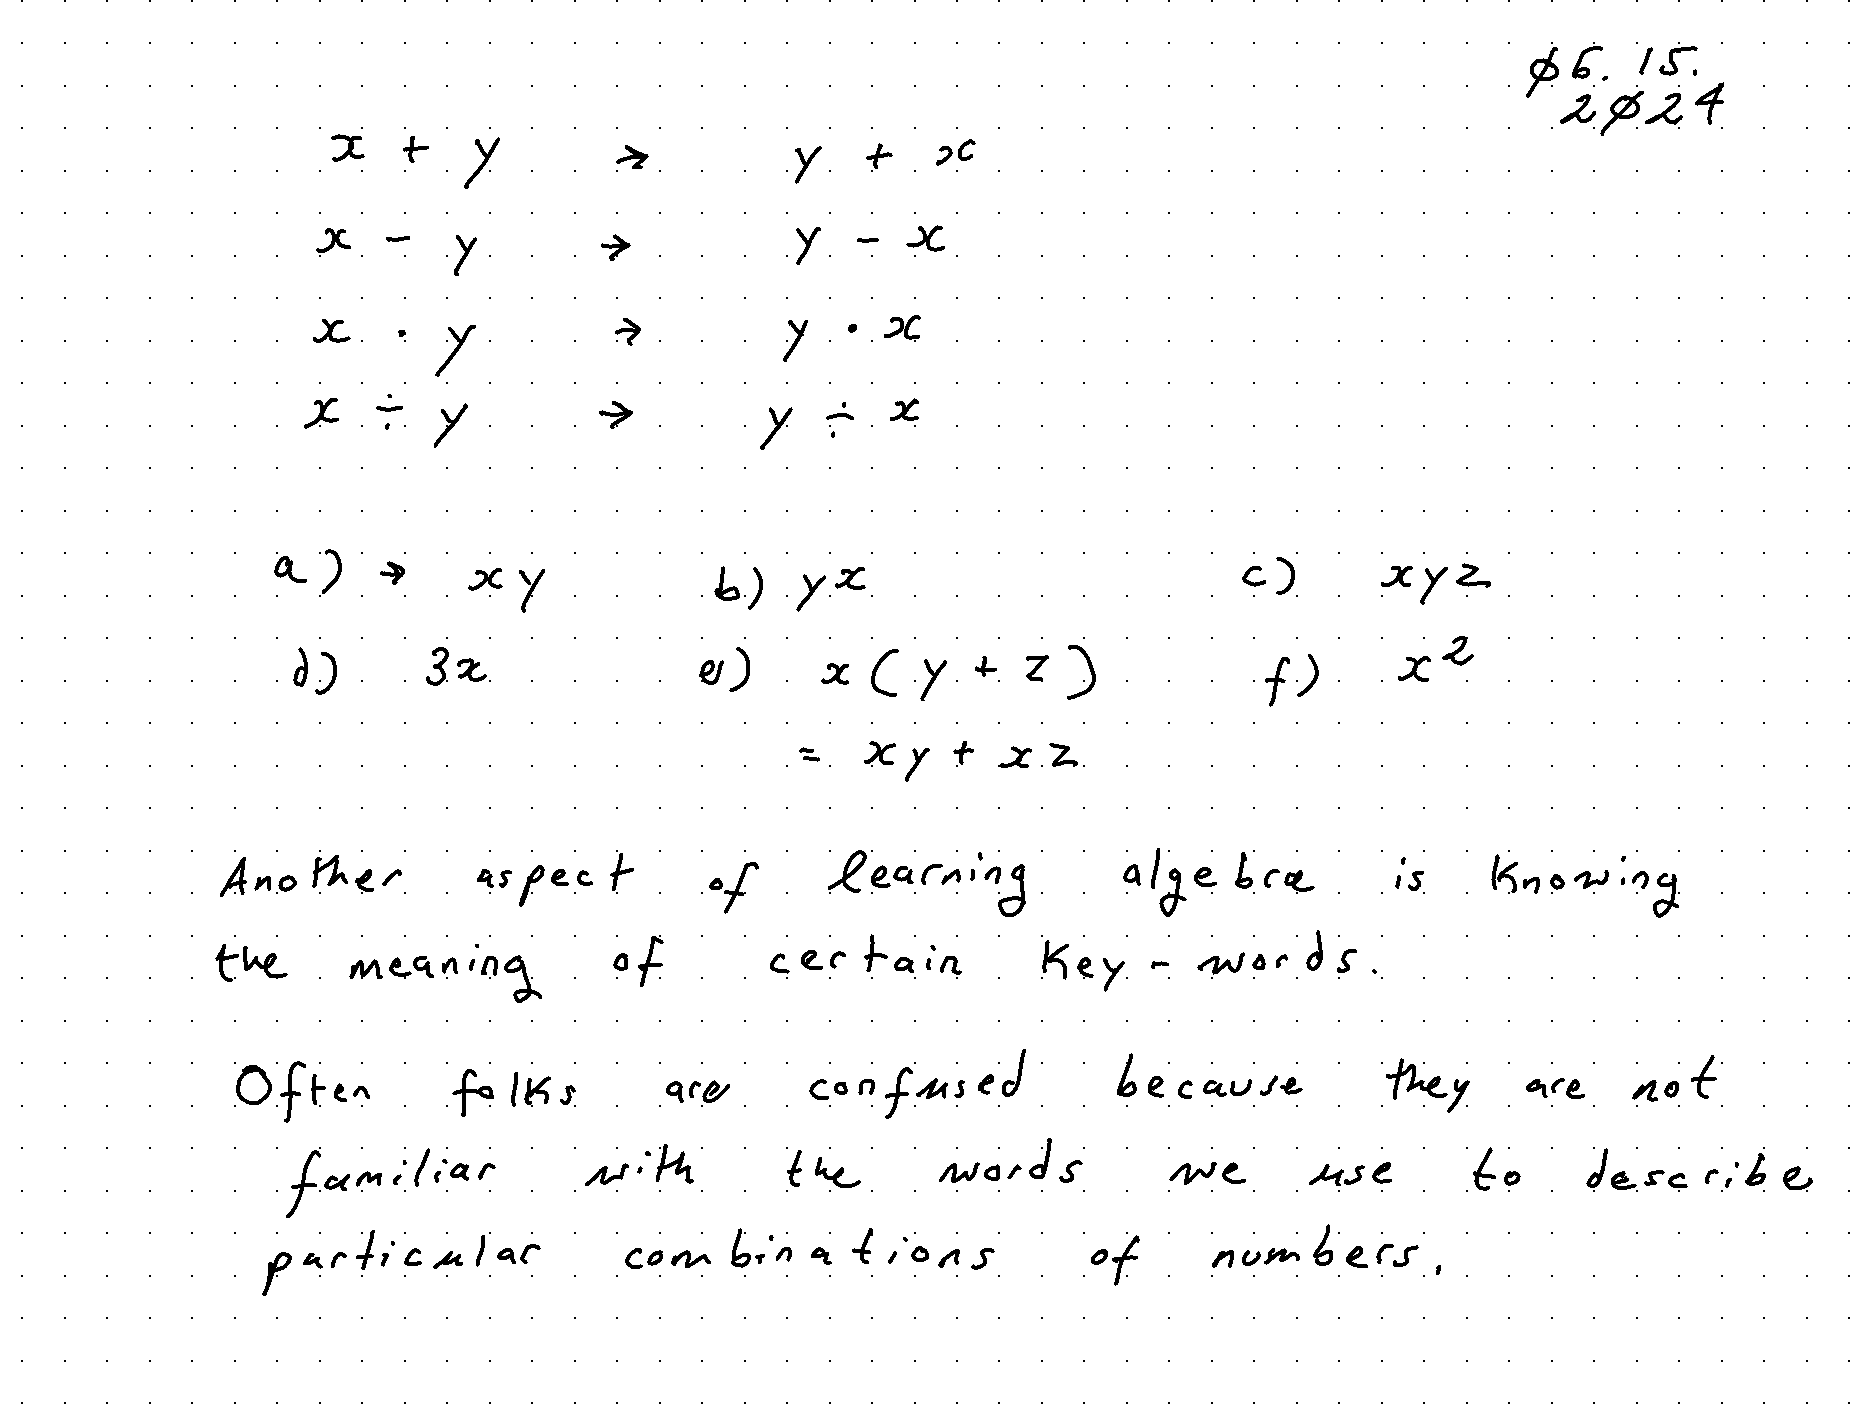 ø6. 15.
2ø24
x + y → y + x
x - y → y - x
x · y → y · x
x ÷ y → y ÷ x
a) → xy b) yx c) xyz
d) 3x e) x(y + z) f) x²
= xy + xz
Another aspect of learning algebra is knowing
the meaning of certain key-words.
Often folks are confused because they are not
familiar with the words we use to describe
particular combinations of numbers.